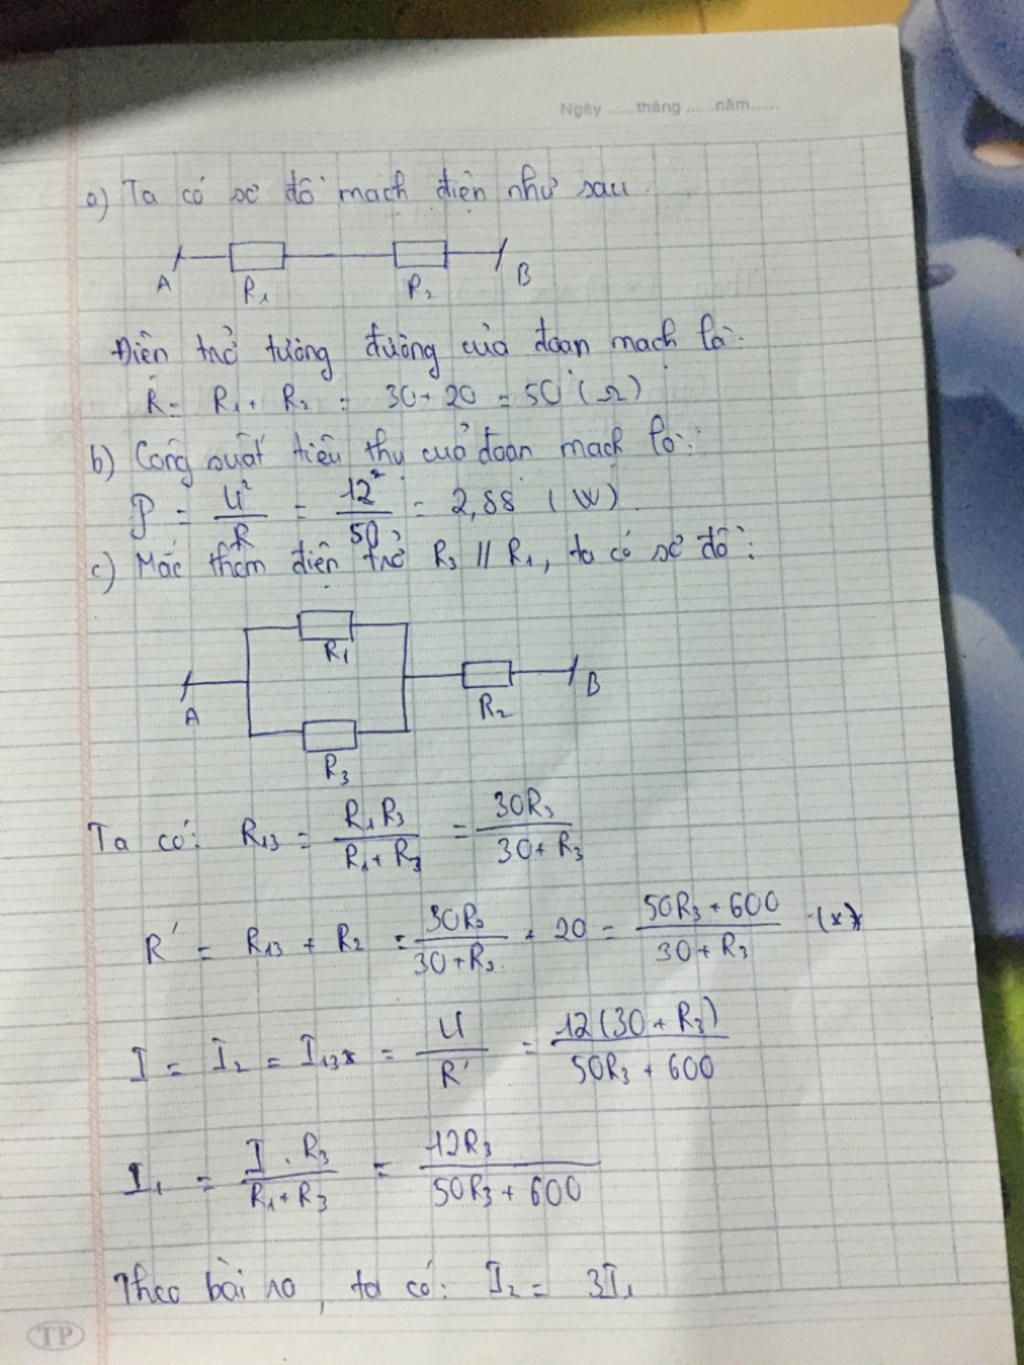 Ngày ......tháng ......năm......
a) Ta có sơ đồ mạch điện như sau
A R₁ R₂ B
Điện trở tương đương của đoạn mạch là:
R = R₁ + R₂ = 30 + 20 = 50 (Ω)
b) Công suất tiêu thụ của đoạn mạch là:
P = U²/R = 12²/50 = 2,88 (W)
c) Mắc thêm điện trở R₃ // R₁, ta có sơ đồ:
R₁
A R₂ B
R₃
Ta có: R₁₃ = R₁R₃/(R₁ + R₃) = 30R₃/(30 + R₃)
R' = R₁₃ + R₂ = 30R₃/(30 + R₃) + 20 = (50R₃ + 600)/(30 + R₃) (x)
I = I₂ = I₁₃ = U/R' = 12(30 + R₃)/(50R₃ + 600)
I₁ = I . R₃/(R₁ + R₃) = 12R₃/(50R₃ + 600)
Theo bài ra, ta có: I₂ = 3I₁
TP